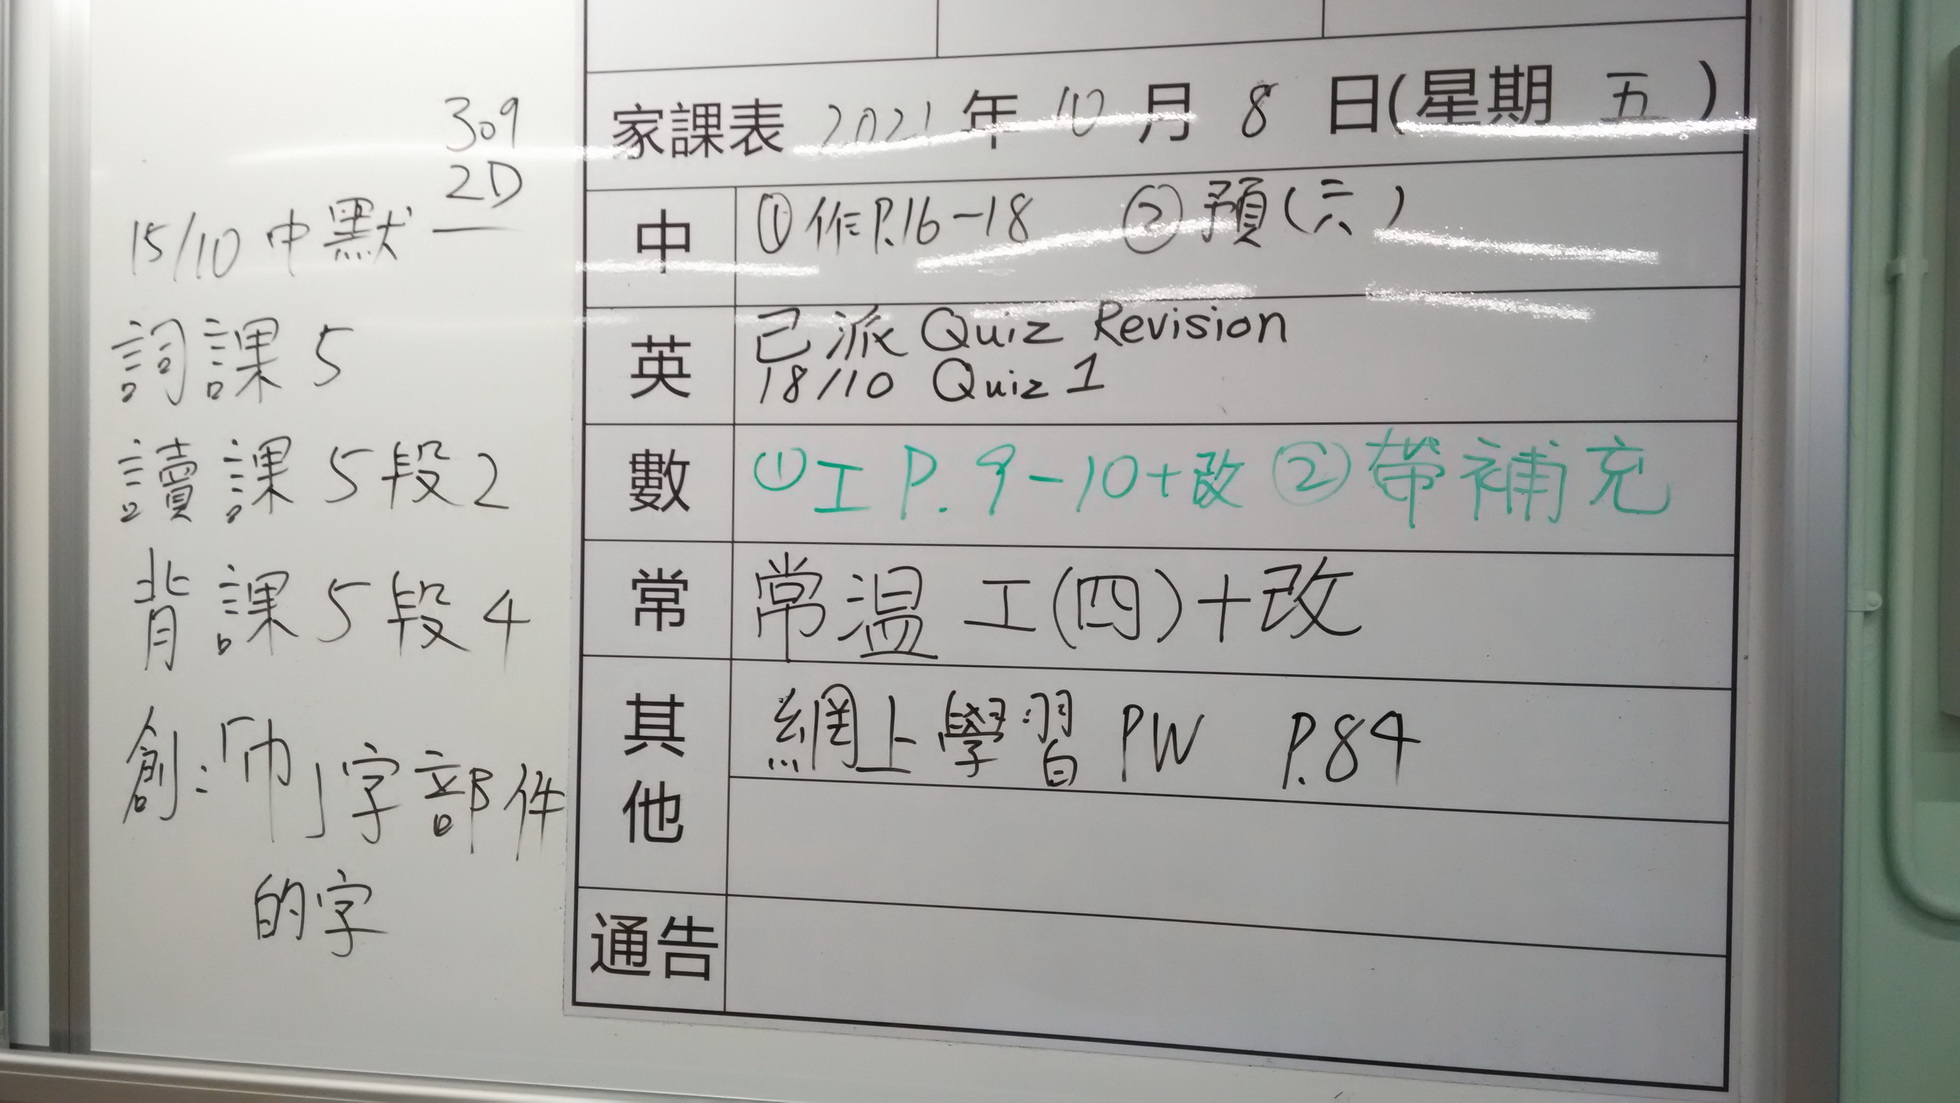 309
2D
15/10 中默
詞課 5
讀課 5段2
背課 5段4
創:「巾」字部件
的字
家課表 2021 年 10 月 8 日(星期 五 )
中 ① 作P.16-18 ② 預(六)
英 已派 Quiz Revision
18/10 Quiz 1
數 ① 工 P. 9-10+改 ② 帶補充
常 常温 工(四)+改
其他 網上學習 PW P.84
通告